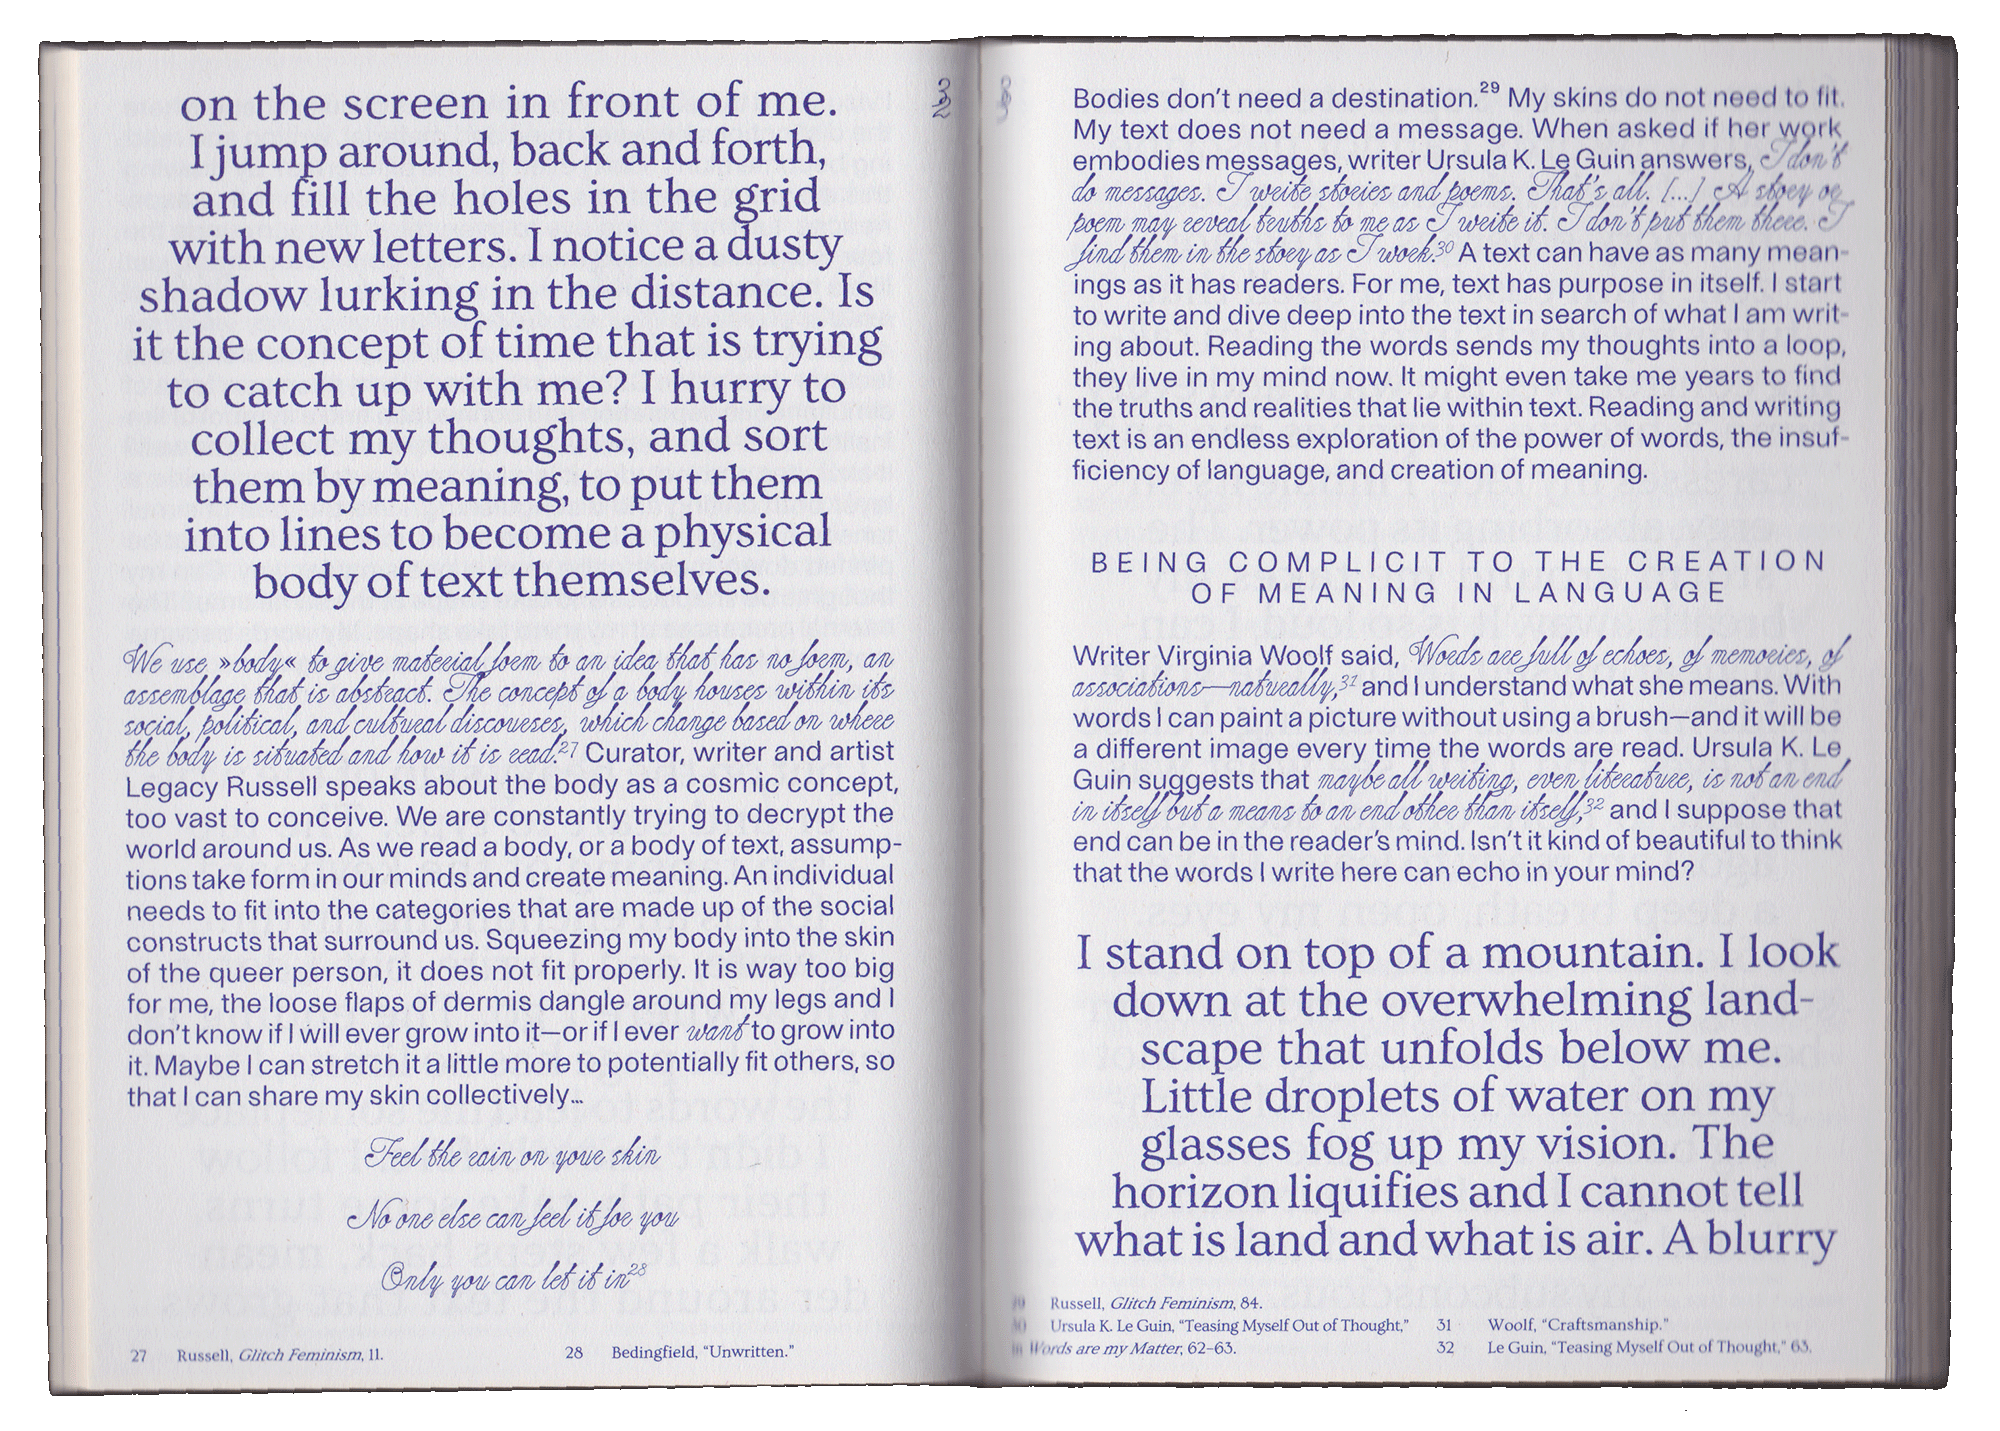 on the screen in front of me.
I jump around, back and forth,
and fill the holes in the grid
with new letters. I notice a dusty
shadow lurking in the distance. Is
it the concept of time that is trying
to catch up with me? I hurry to
collect my thoughts, and sort
them by meaning, to put them
into lines to become a physical
body of text themselves.
We use »body« to give material form to an idea that has no form, an
assemblage that is abstract. The concept of a body houses within its
social, political, and cultural discourses, which change based on where
the body is situated and how it is read.27 Curator, writer and artist
Legacy Russell speaks about the body as a cosmic concept,
too vast to conceive. We are constantly trying to decrypt the
world around us. As we read a body, or a body of text, assump-
tions take form in our minds and create meaning. An individual
needs to fit into the categories that are made up of the social
constructs that surround us. Squeezing my body into the skin
of the queer person, it does not fit properly. It is way too big
for me, the loose flaps of dermis dangle around my legs and I
don't know if I will ever grow into it—or if I ever want to grow into
it. Maybe I can stretch it a little more to potentially fit others, so
that I can share my skin collectively…
Feel the rain on your skin
No one else can feel it for you
Only you can let it in28
27 Russell, Glitch Feminism, 11.
28 Bedingfield, “Unwritten.”
32
33
Bodies don't need a destination.29 My skins do not need to fit.
My text does not need a message. When asked if her work
embodies messages, writer Ursula K. Le Guin answers, I don't
do messages. I write stories and poems. That's all. [...] A story or
poem may reveal truths to me as I write it. I don't put them there. I
find them in the story as I work.30 A text can have as many mean-
ings as it has readers. For me, text has purpose in itself. I start
to write and dive deep into the text in search of what I am writ-
ing about. Reading the words sends my thoughts into a loop,
they live in my mind now. It might even take me years to find
the truths and realities that lie within text. Reading and writing
text is an endless exploration of the power of words, the insuf-
ficiency of language, and creation of meaning.
BEING COMPLICIT TO THE CREATION
OF MEANING IN LANGUAGE
Writer Virginia Woolf said, Words are full of echoes, of memories, of
associations—naturally,31 and I understand what she means. With
words I can paint a picture without using a brush—and it will be
a different image every time the words are read. Ursula K. Le
Guin suggests that maybe all writing, even literature, is not an end
in itself but a means to an end other than itself,32 and I suppose that
end can be in the reader's mind. Isn't it kind of beautiful to think
that the words I write here can echo in your mind?
I stand on top of a mountain. I look
down at the overwhelming land-
scape that unfolds below me.
Little droplets of water on my
glasses fog up my vision. The
horizon liquifies and I cannot tell
what is land and what is air. A blurry
Russell, Glitch Feminism, 84.
30 Ursula K. Le Guin, “Teasing Myself Out of Thought,”
in Words are my Matter, 62–63.
31 Woolf, “Craftsmanship.”
32 Le Guin, “Teasing Myself Out of Thought,” 63.